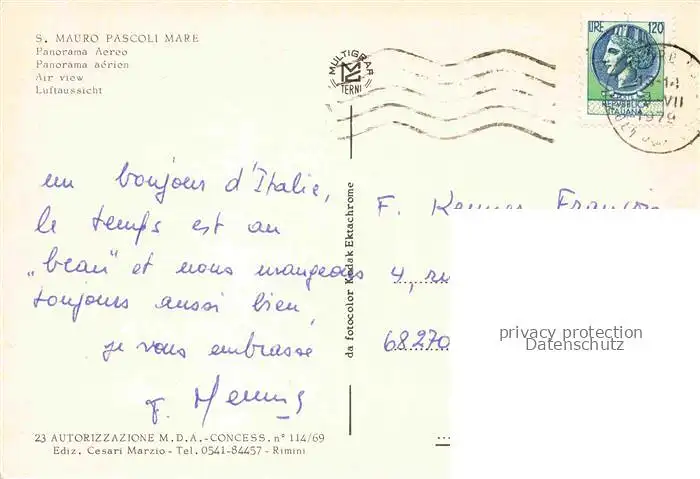 S. MAURO PASCOLI MARE
Panorama Aereo
Panorama aérien
Air view
Luftaussicht
MULTIGRAF
TERNI
LIRE 120
REPUBBLICA
ITALIANA
1979
un bonjour d'Italie,
le temps est au
„beau" et nous mangeons
toujours aussi bien,
je vous embrasse
F.
4,
68270
da fotocolor Kodak Ektachrome
privacy protection
Datenschutz
23 AUTORIZZAZIONE M.D.A.-CONCESS. n° 114/69
Ediz. Cesari Marzio - Tel. 0541-84457 - Rimini